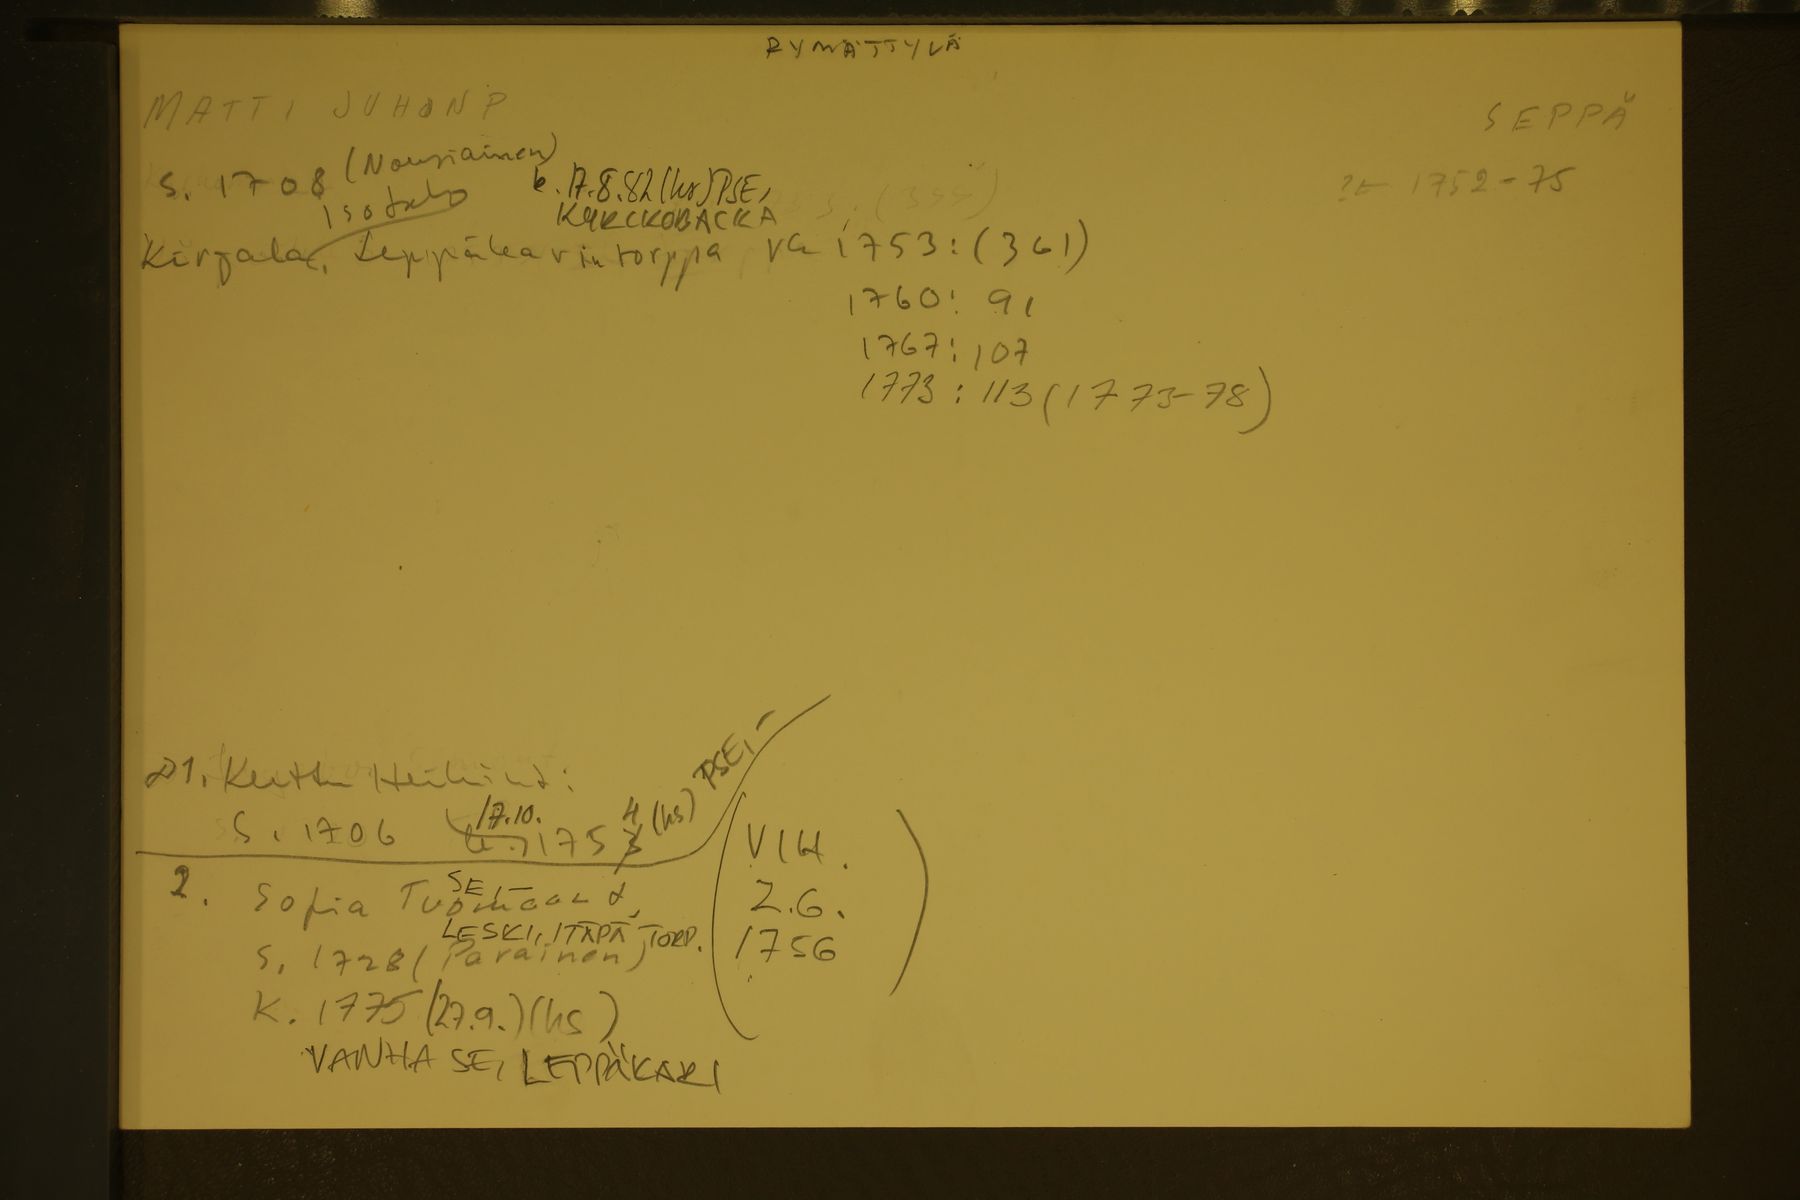 RYMÄTTYLÄ
MATTI JUHONP
SEPPÄ
S. 1708 (Nousiainen)
k. 17.8.82 (hs) PSE,
1752-75
Isotalo
KYRCKOBACKA
Kirjala, Leppäkarin torppa rk 1753: (361)
1760: 91
1767: 107
1773: 113 (1773-78)
1. Kerttu Heikint:
PSE,
S. 1706 k. 17.10. 1754 (hs)
2. Sofia Tuomaant,
SE,
LESKI, ITÄPÄ TORP.
S. 1728 (Parainen)
K. 1775 (27.9.) (hs)
VANHA SE, LEPPÄKARI
(VIH.
2.6.
1756)